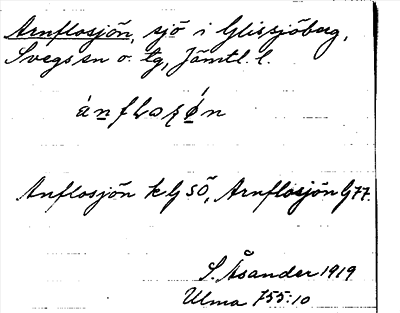 Arnflosjön, sjö i Glissjöberg,
Svegs sn o. tg, Jämtl. l.
Anflosjön k G SÖ, Arnflosjön G 77.
S. Åsander 1919
Ulma 755:10